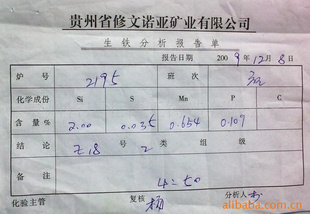 贵州省修文诺亚矿业有限公司
生铁分析报告单
报告日期 2009年12月8日
炉号 2195 班次
化学成份 Si S Mn P C
含量% 2.00 0.035 0.654 0.107
结论 Z18 号 2 类 组 级
备注 4=50
化验主管 复核 杨 分析人
alibaba.com.cn